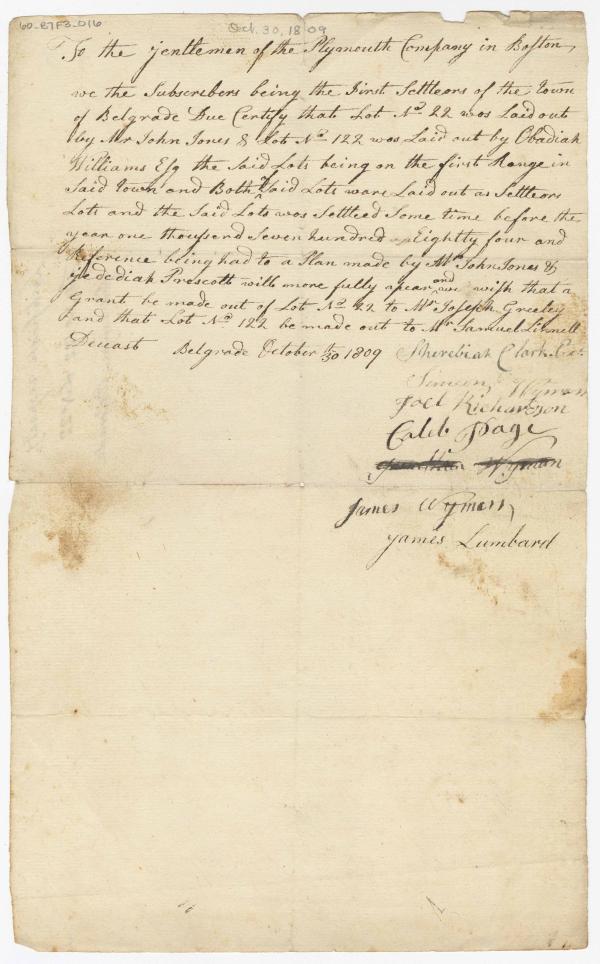 60-B7F3-016
Oct. 30, 1809
To the jentlemen of the Plymouth Company in Boston,
we the Subscribers being the First Settlers of the Town
of Belgrade Due Certify that Lot No 22 was Laid out
by Mr John Jones & Lot No 122 was Laid out by Obadiah
Williams Esq the Said Lots being on the first Range in
Said Town and Both of Said Lots ware Laid out as Settlers
Lots and the Said Lots was Settled Some time before the
year one thousend Seven hundred Eightly four and
Reference being had to a Plan made by Mr John Jones &
jedediah Prescott will more fully apear and we wish that a
Grant be made out of Lot No 22 to Mr Joseph Greeley
and that Lot No 122 be made out to Mr Samuel
Deceast Belgrade October 30 1809 Sherebiah Clark
Simeon Wyman
Joel Richardson
Caleb Page
Wyman
James Wyman
James Lumbard